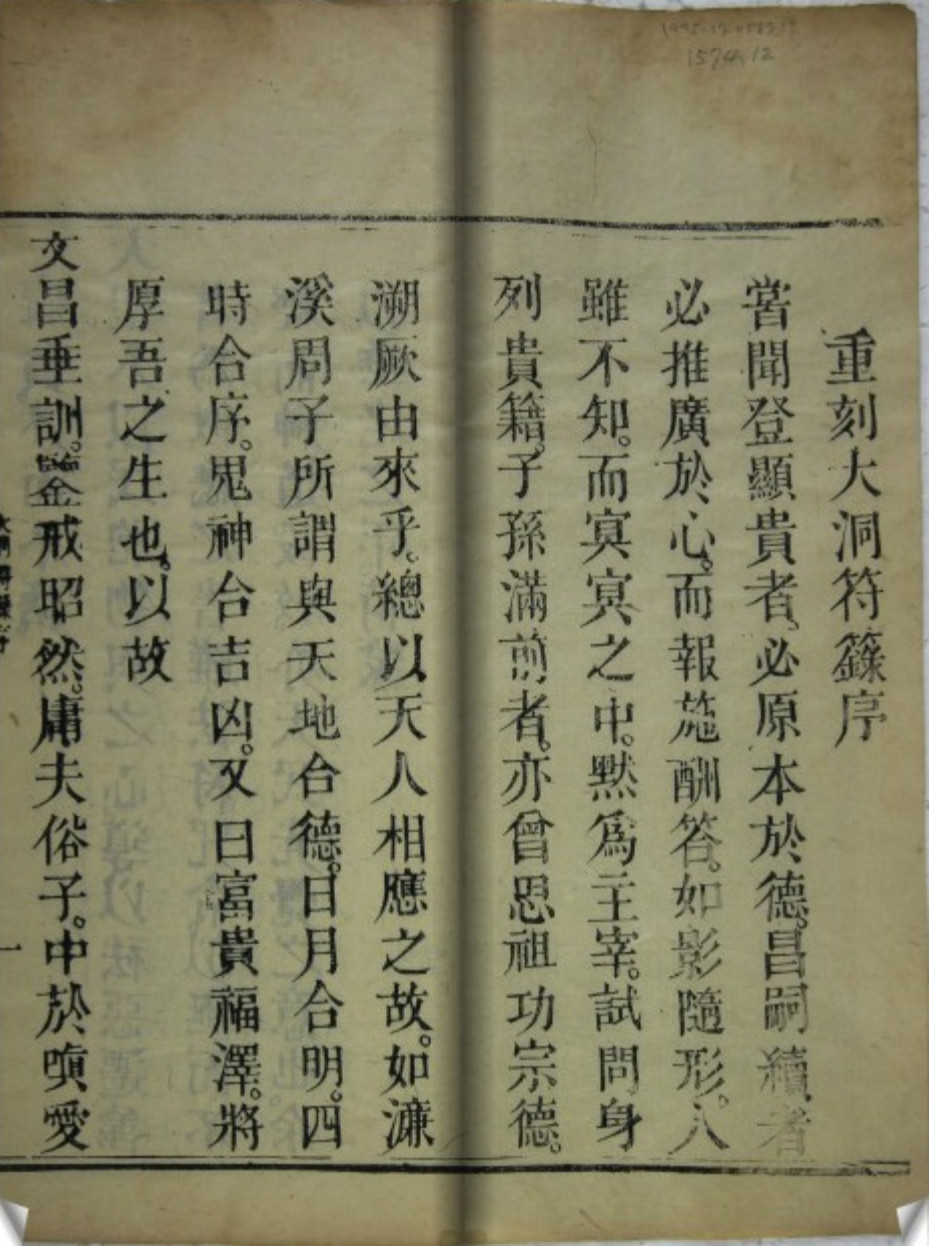 重刻大洞符籙序
嘗聞登顯貴者。必原本於德。昌嗣續者
必推廣於心。而報施酬答。如影隨形。人
雖不知。而冥冥之中。默爲主宰。試問身
列貴籍。子孫滿前者。亦曾思祖功宗德。
溯厥由來乎。總以天人相應之故。如濂
溪周子所謂與天地合德。日月合明。四
時合序。鬼神合吉凶。又曰富貴福澤。將
厚吾之生也。以故
文昌垂訓。鑒戒昭然。庸夫俗子。中於嗔愛
一
1574,12